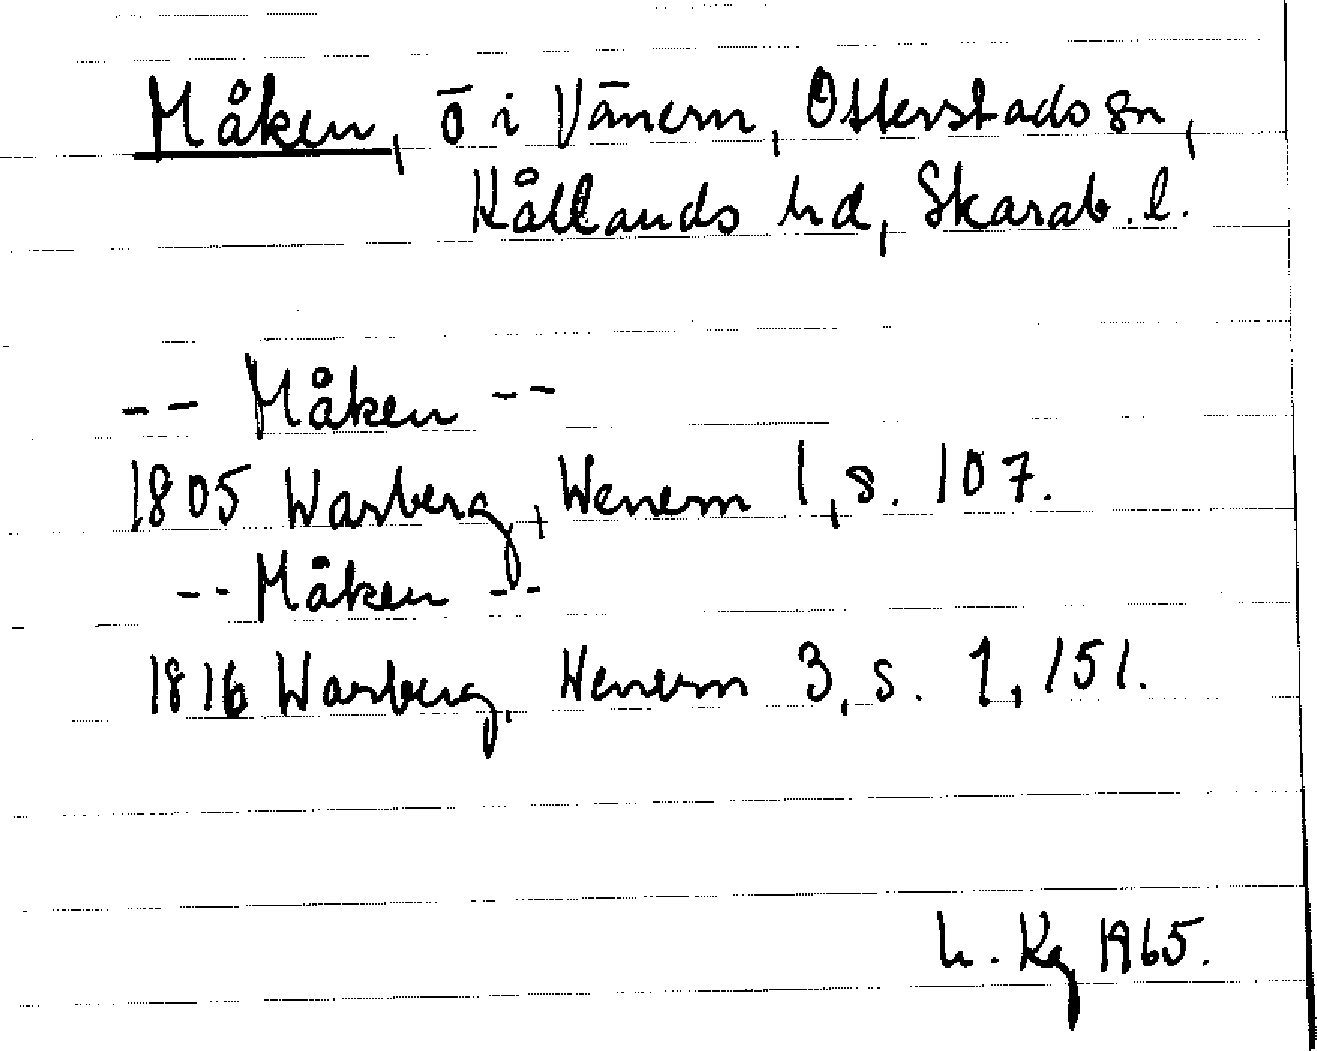 Måken, ö i Vänern, Otterstads sn,
Kållands hd, Skarab. l.
-- Måken --
1805 Warberg, Wenern 1, s. 107.
-- Måken --
1816 Warberg, Wenern 3, s. 1, 151.
L. Kg 1965.